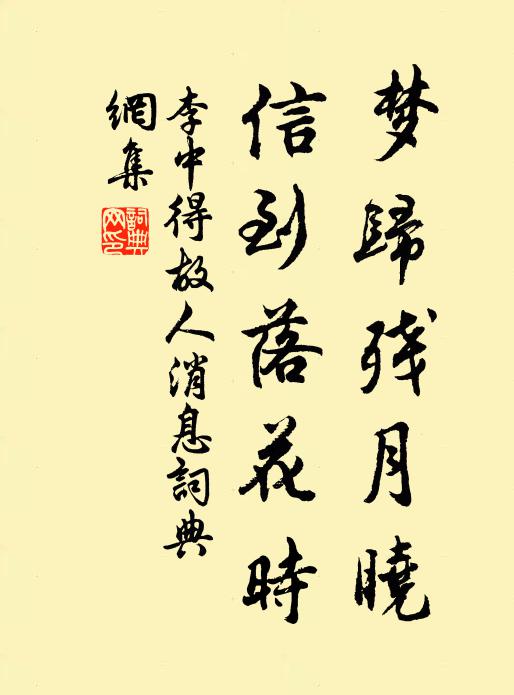 梦歸残月曉
信到落花時
李中得故人消息詞典
網集
詞典
网印